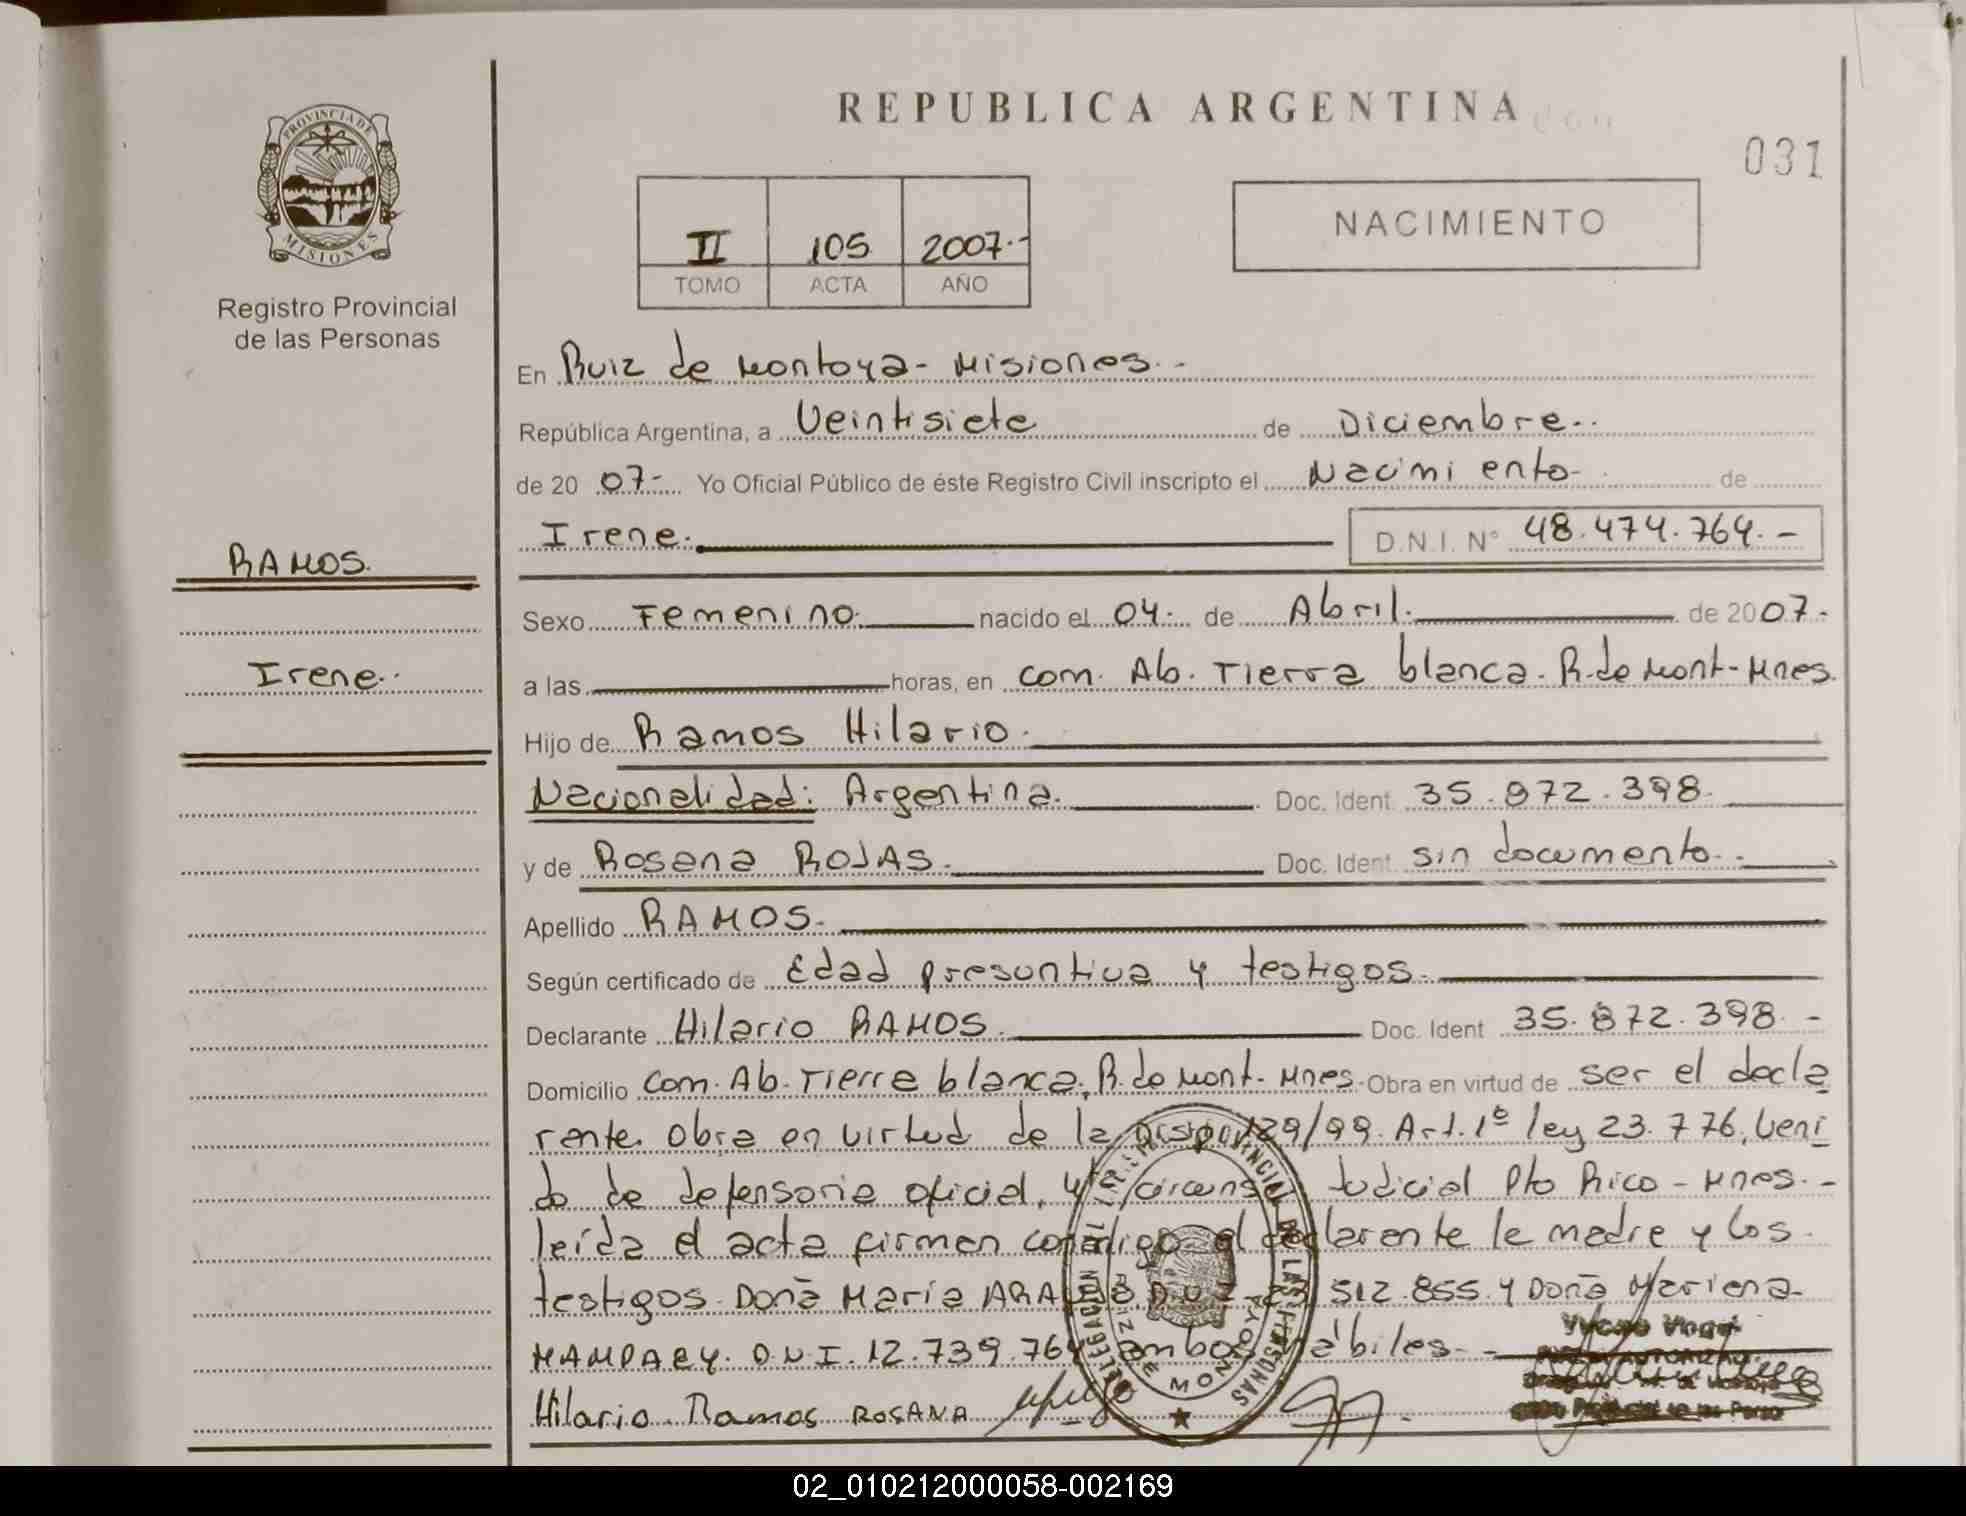 REPUBLICA ARGENTINA
031
PROVINCIA DE
MISIONES
Registro Provincial
de las Personas
II 105 2007.-
TOMO ACTA AÑO
NACIMIENTO
En Ruiz de Montoya- Misiones.-
República Argentina, a Veintisiete de Diciembre.
de 20 07- Yo Oficial Público de éste Registro Civil inscripto el Nacimiento- de
Irene. D.N.I. N° 48.474.764.-
RAMOS.
Irene.
Sexo Femenino. nacido el 04. de Abril. de 2007.-
a las horas, en com. Ab. Tierra blanca. R. de Mont- Mnes.
Hijo de Ramos Hilario.
Nacionalidad: Argentina. Doc. Ident. 35.872.398.
y de Rosana ROJAS. Doc. Ident. sin documento.
Apellido RAMOS.
Según certificado de Edad presuntiva y testigos.
Declarante Hilario RAMOS. Doc. Ident 35.872.398.-
Domicilio com. Ab. Tierra blanca, R. de Mont- Mnes. Obra en virtud de ser el decla
rente. Obra en virtud de la Dispo. 129/99. Art. 1º ley 23.776, Veni
do de defensoria oficial, 4ta circuns Judicial Pto Rico - Mnes.-
leída el acta firman conmigo el declarante la madre y los
testigos. Doña María ARAUJO D.N.I. 512.855. y Doña Mariana
MAMPAEY. D.N.I. 12.739.764 ambos hábiles.-
Hilario Ramos ROSANA
DELEGACION
RUIZ DE MONTOYA
02_010212000058-002169